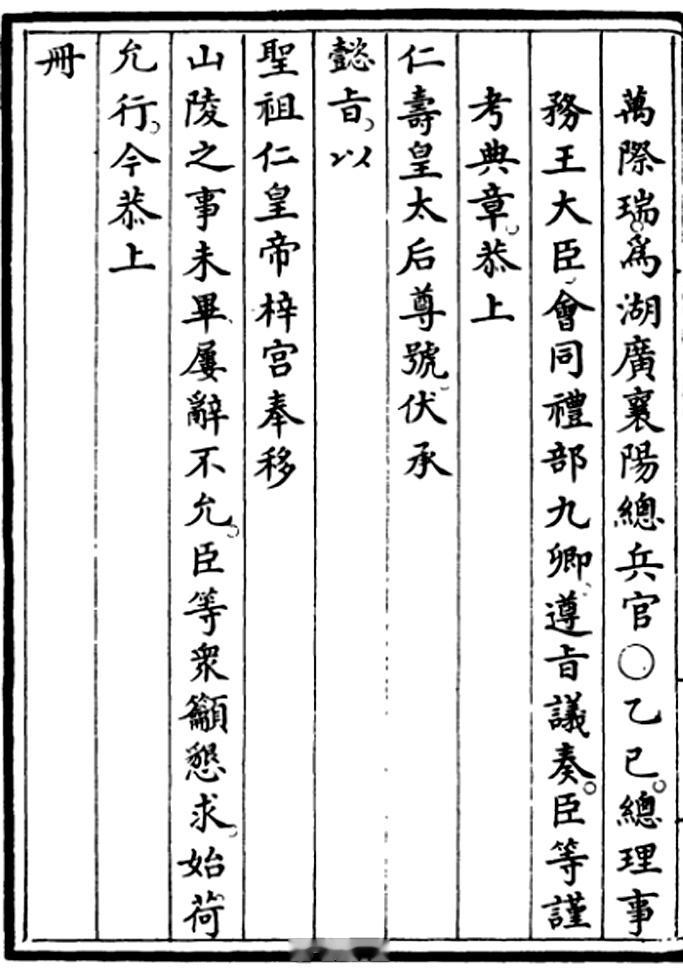 萬際瑞。爲湖廣襄陽總兵官〇乙巳。總理事
務王大臣、會同禮部九卿、遵旨議奏。臣等謹
考典章。恭上
仁壽皇太后尊號、伏承
懿旨、以
聖祖仁皇帝梓宮奉移
山陵之事未畢、屢辭不允。臣等衆籲懇求、始荷
允行。今恭上
冊